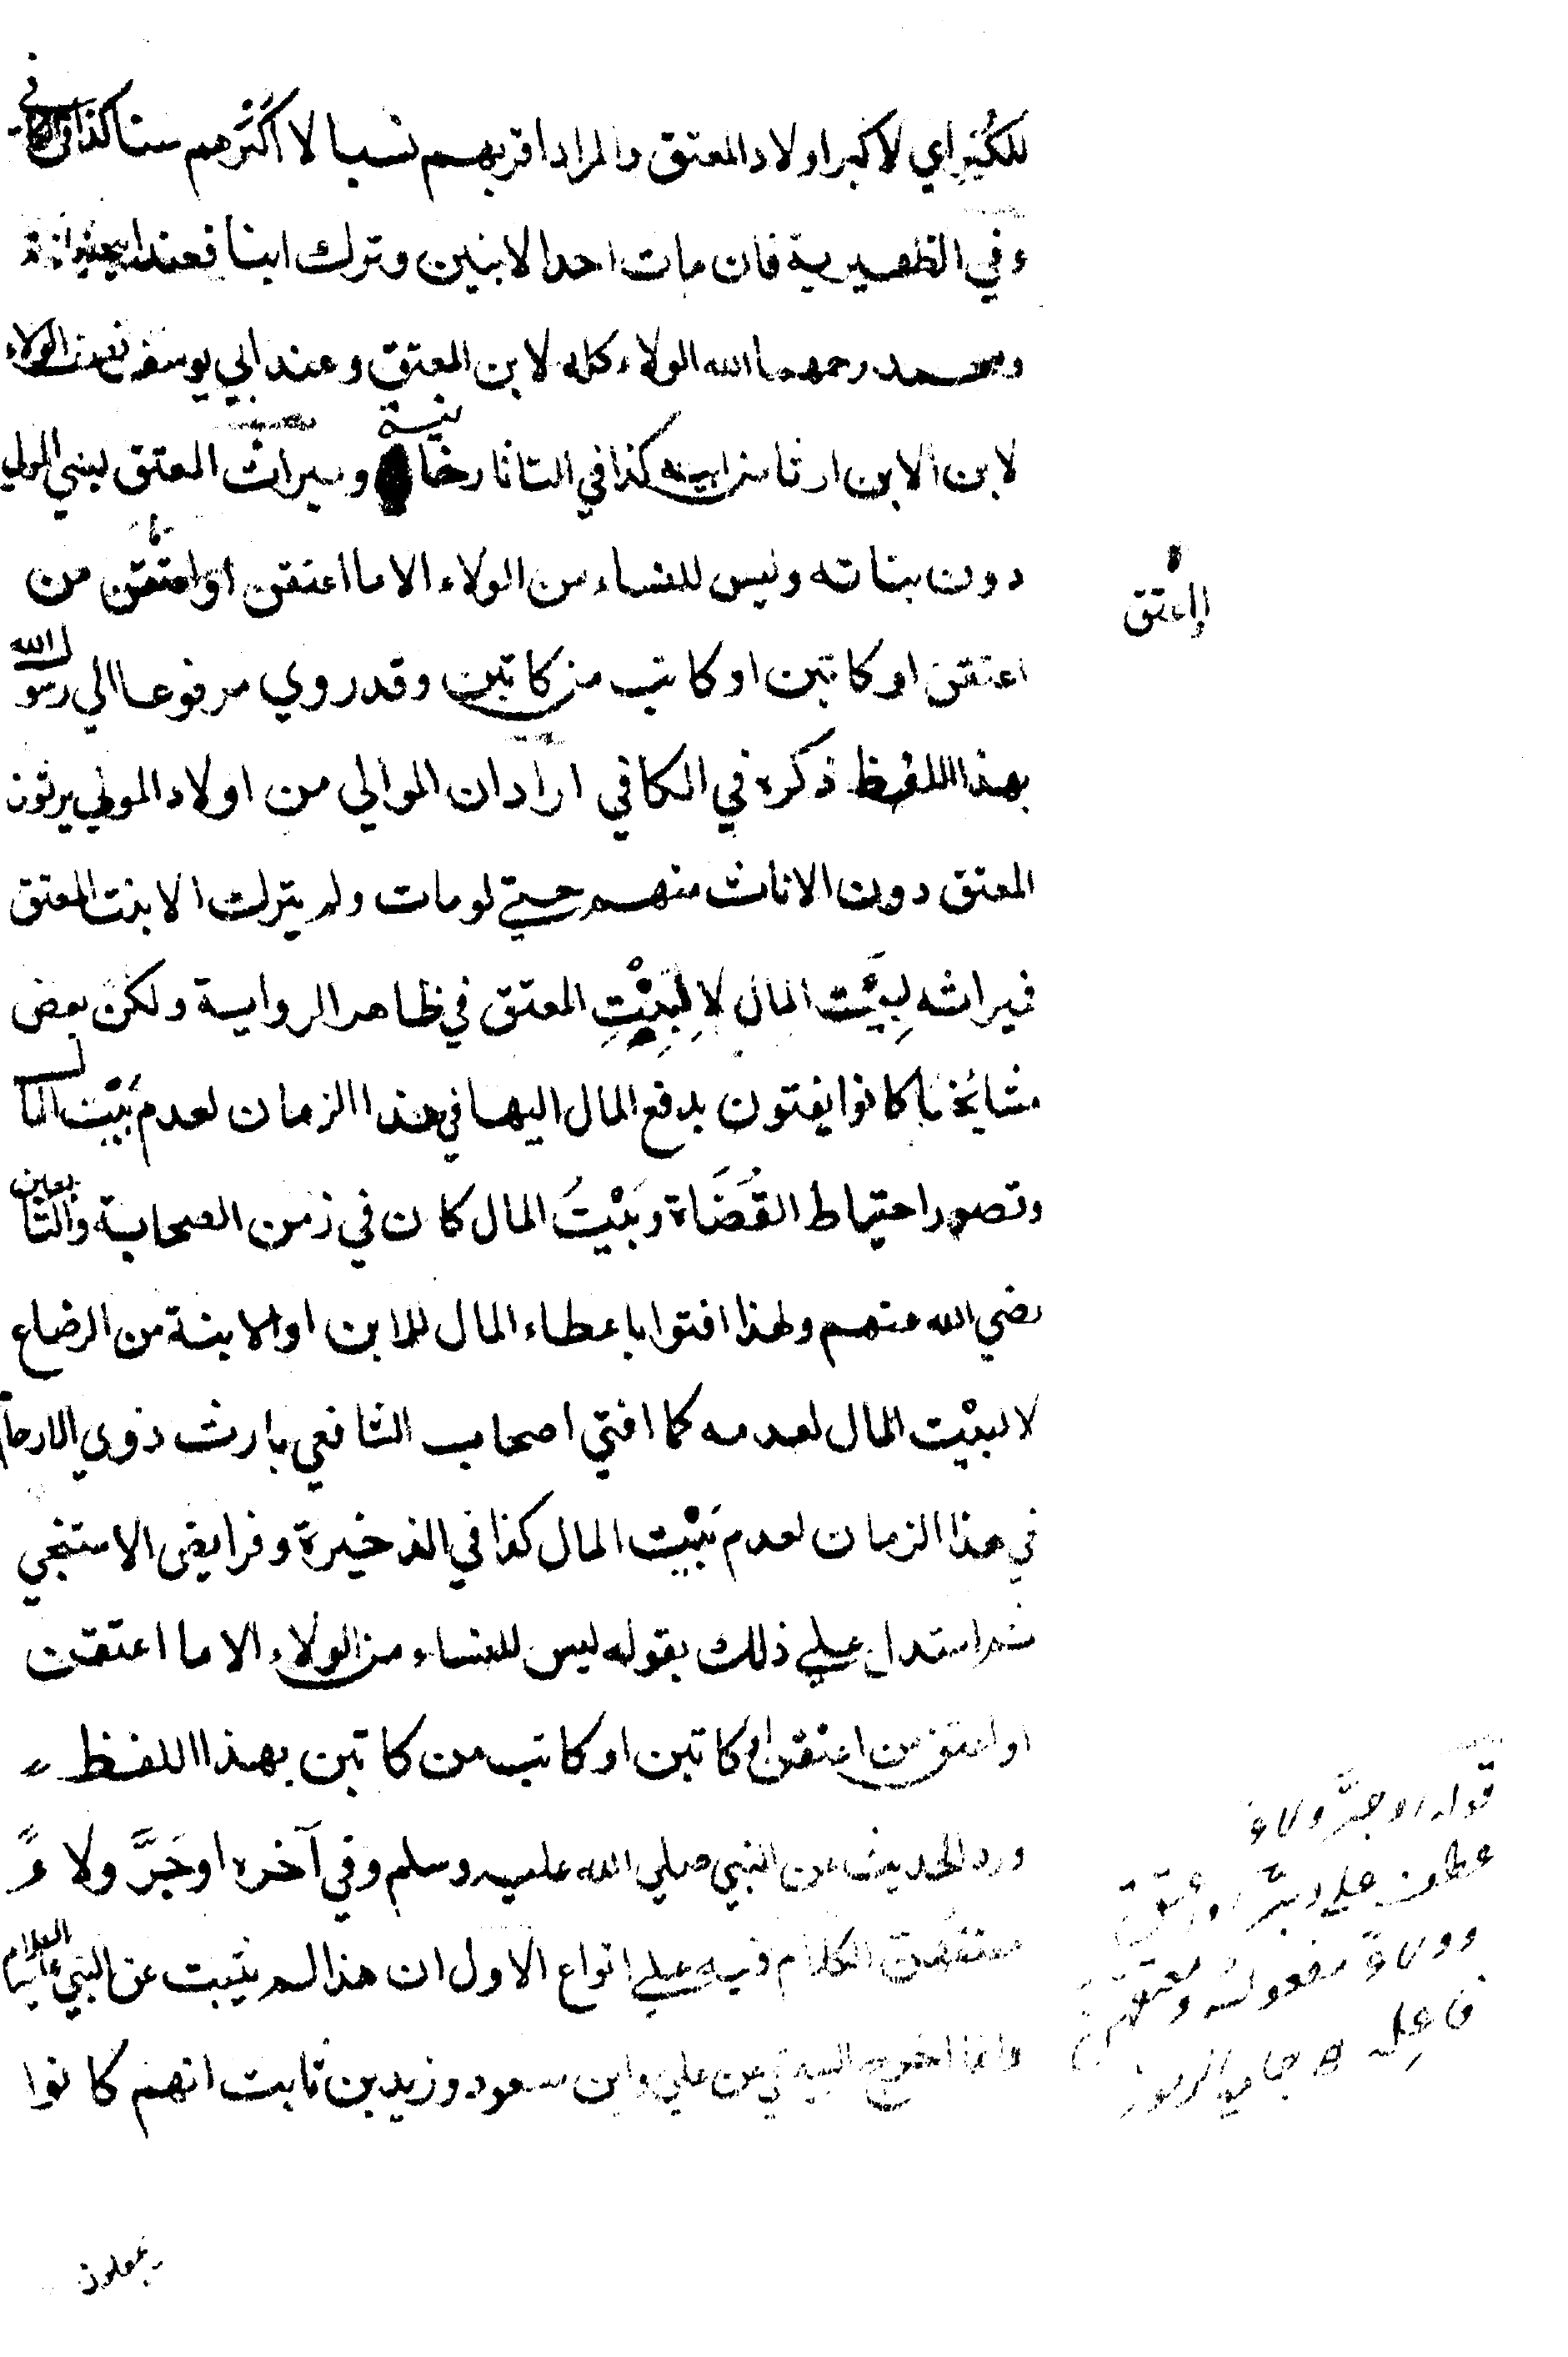 للكُبْرِ اي لاكبر اولاد المعتق والمراد اقربهم نسبا لا اكثرهم سنا كذا في
وفي الظهيرية فان مات احد الابنين وترك ابنا فعند ابيحنيفة
ومحمد رحمهما الله الولاء كله لابن المعتق وعند ابي يوسف نصف الولاء
لابن الابن ارثا من ابيه كذا في التاتارخانية وميراث المعتق لبني المولي
دون بناته وليس للنساء من الولاء الا ما اعتقن او اعتق من
اعتقن او كاتبن او كاتب من كاتبن وقد روي مرفوعا الي رسول الله
بهذا اللفظ ذكره في الكافي اراد ان الموالي من اولاد المولي يرثون
المعتق دون الاناث منهم حتي لو مات ولم يترك الا بنت المعتق
فميراثه لِبَيْت المال لا لِبِنْتِ المعتق في ظاهر الرواية ولكن بعض
مشائخنا كانوا يفتون بدفع المال اليها في هذا الزمان لعدم بَيْت المال
وتصور احتياط القُضَاة وبَيْتُ المال كان في زمن الصحابة والتابعين
رضي الله عنهم ولهذا افتوا باعطاء المال للابن او الابنة من الرضاع
لا لبيْت المال لعدمه كما افتي اصحاب الشافعي بارث ذوي الارحام
في هذا الزمان لعدم بَيْت المال كذا في الذخيرة وفرايض الاستيجي
ثم استدل علي ذلك بقوله ليس للنساء من الولاء الا ما اعتقن
او اعتق من اعتقن او كاتبن او كاتب من كاتبن بهذا اللفظ
ورد الحديث عن النبي صلي الله عليه وسلم وفي آخره او جَرَّ ولاءً
معتقهن الكلام فيه علي انواع الاول ان هذا لم يثبت عن النبي عليه السلام
وانما اخرج البيهقي عن علي وابن مسعود وزيد بن ثابت انهم كانوا
او اعتق
قوله او جَرَّ ولاءً
عطف علي دبر او عتق
وولاءً مفعوله ومعتقهن
فاعِله جامع الرموز
يجعلون